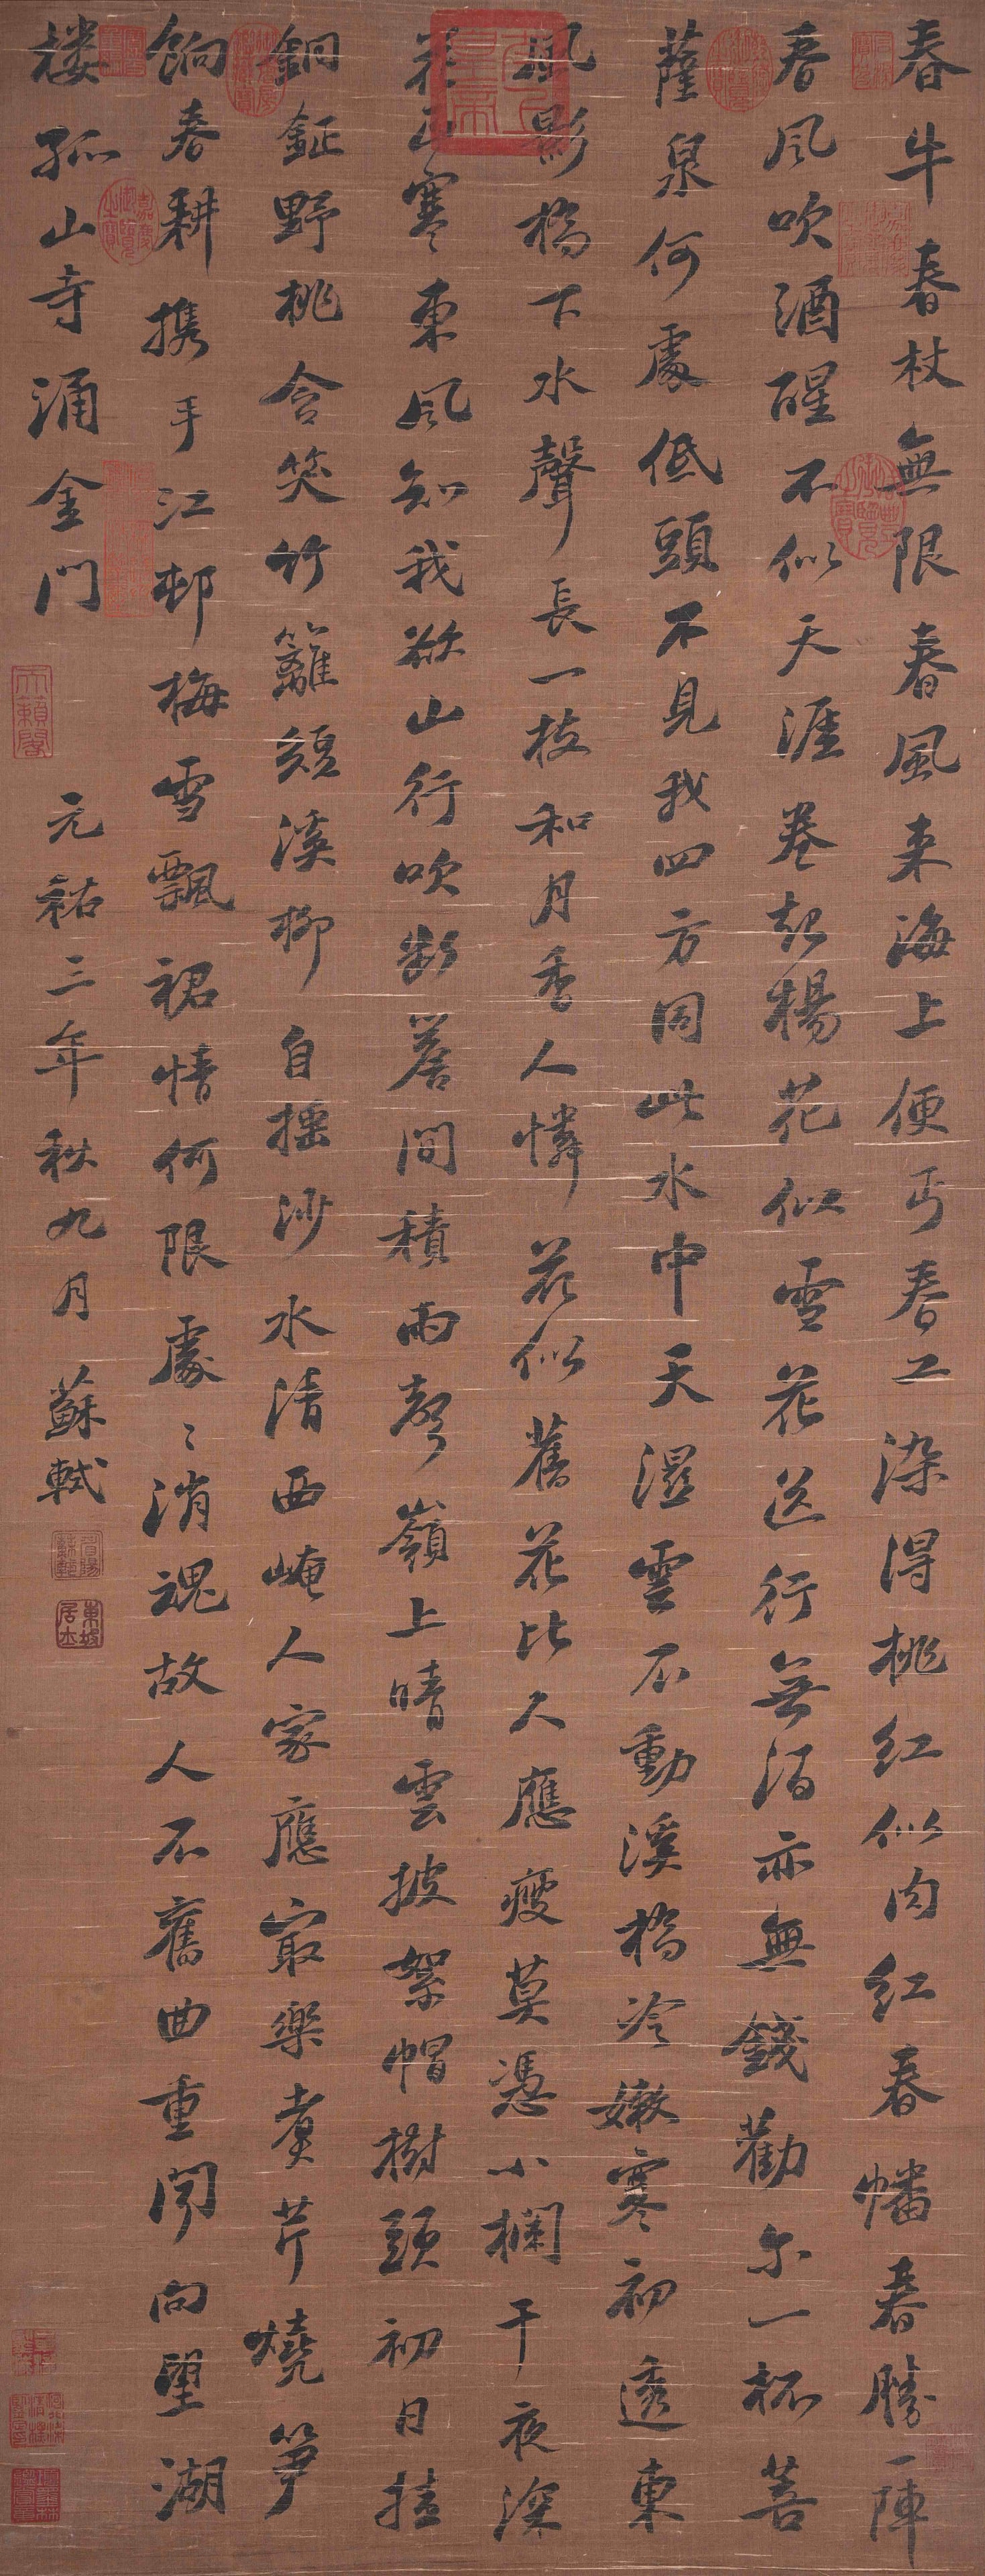 春牛春杖無限春風来海上便丐春工染得桃紅似肉紅春幡春勝一陣
春風吹酒醒不似天涯卷起楊花似雪花送行無酒亦無錢勸尔一杯菩
薩泉何處低頭不見我四方同此水中天濕雲不動溪橋冷嫩寒初透東
風影橋下水聲長一枝和月香人憐花似舊花比人應瘦莫憑小欄干夜深
花正寒東風知我欲山行吹断簷間積雨聲嶺上晴雲披絮帽樹頭初日挂
銅鉦野桃含笑竹籬短溪柳自摇沙水清西崦人家應最樂煮芹燒笋
餉春耕携手江邨梅雪飄裙情何限處〻消魂故人不舊曲重聞向望湖
樓孤山寺涌金門 元祐三年秋九月 蘇軾
東坡居士
天籟閣
嘉慶御覽之寶